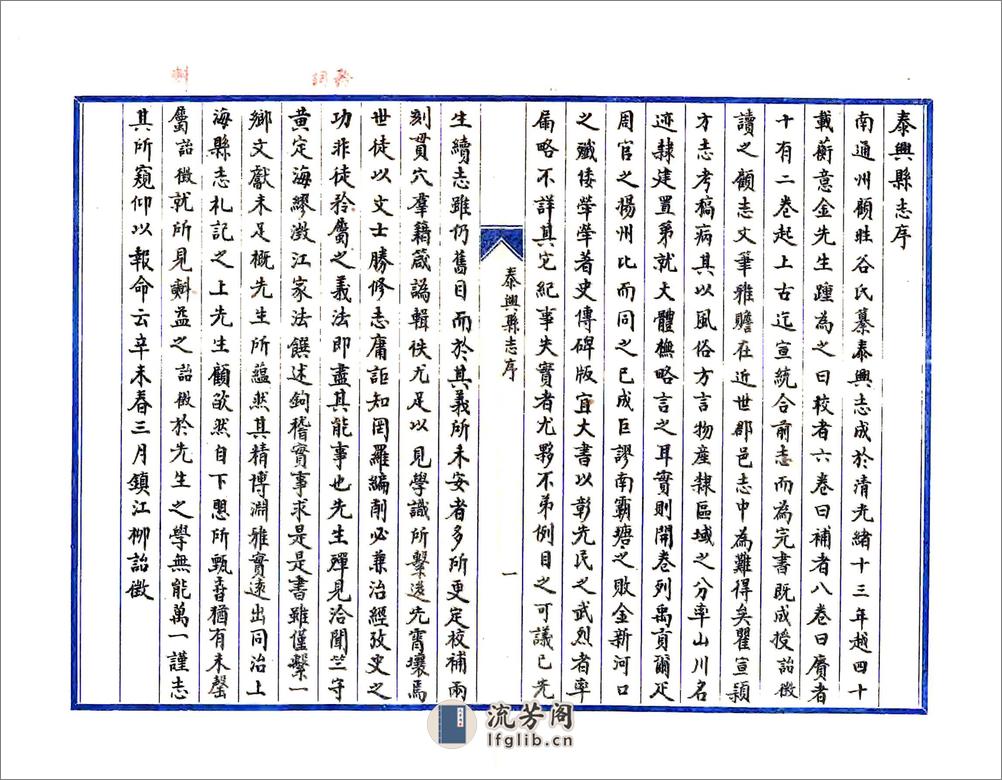 泰興縣志序
南通州顧胜谷氏纂泰興志成於清光緒十三年越四十
載蘅意金先生踵為之曰校者六卷曰補者八卷曰賡者
十有二卷起上古迄宣統合前志而為完書既成授詒徵
讀之顧志文筆雅贍在近世郡邑志中為難得矣瞿宣穎
方志考稿病其以風俗方言物產隸區域之分率山川名
迹隸建置弟就大體橅略言之耳實則開卷列禹貢爾疋
周官之揚州比而同之已成巨謬南霸塘之敗金新河口
之殲倭犖犖著史傳碑版宜大書以彰先民之武烈者率
扁略不詳其它紀事失實者尤夥不弟例目之可議已先
泰興縣志序
一
生續志雖仍舊目而於其義所未安者多所更定校補兩
刻貫穴羣籍箴譌輯佚尤足以見學識所鑿遠先霄壤焉
世徒以文士勝修志庸詎知罔羅編削必兼治經攷史之
功非徒矜屬之義法即盡其能事也先生殫見洽聞竺守
黃定海繆澂江家法饌述鉤稽實事求是是書雖僅繫一
鄉文獻未足概先生所蘊然其精博淵雅實遠出同治上
海縣志札記之上先生顧欿然自下愳所甄舂猶有未罄
屬詒徵就所見斠益之詒徵於先生之學無能萬一謹志
其所窺仰以報命云辛未春三月鎮江柳詒徵
流芳阁
lfglib.cn